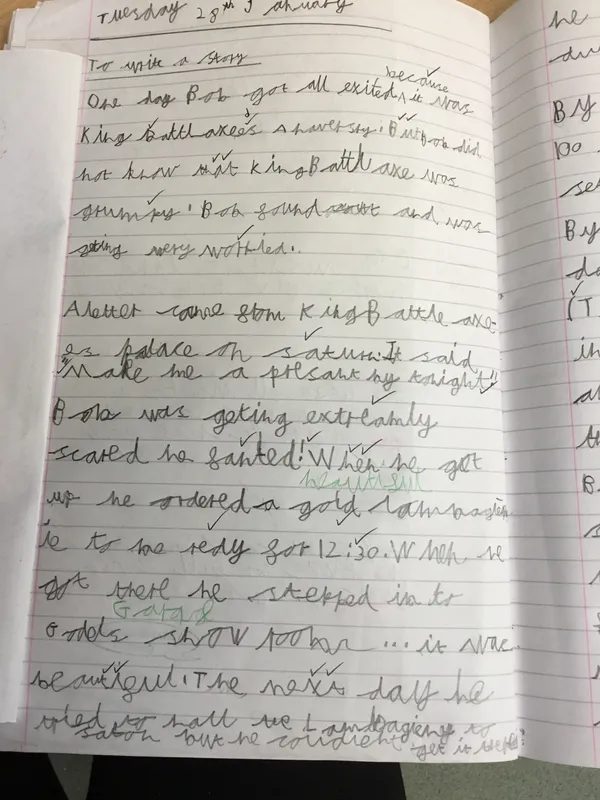 Tuesday 28th January
To write a story
because
One day Bob got all exited ^ it was
King battlaxees anaversry. But Bob did
not know that King Battl axe was
grumpy. Bob found out and was
geting very worried.
A letter came from King Battle axe
es palace on saturn. It said
"Make me a present by tonight!"
Bob was geting extreamly
scared he fanted! When he got
beautiful
up he ordered a gold lambagien
ie to be redy for 12:30. When he
got there he stepped in to
Garag
show room ... it was
beautiful. The next day he
tried to hall the Lambagieny to
saton but he couldent get it
he
By
100
By
(T